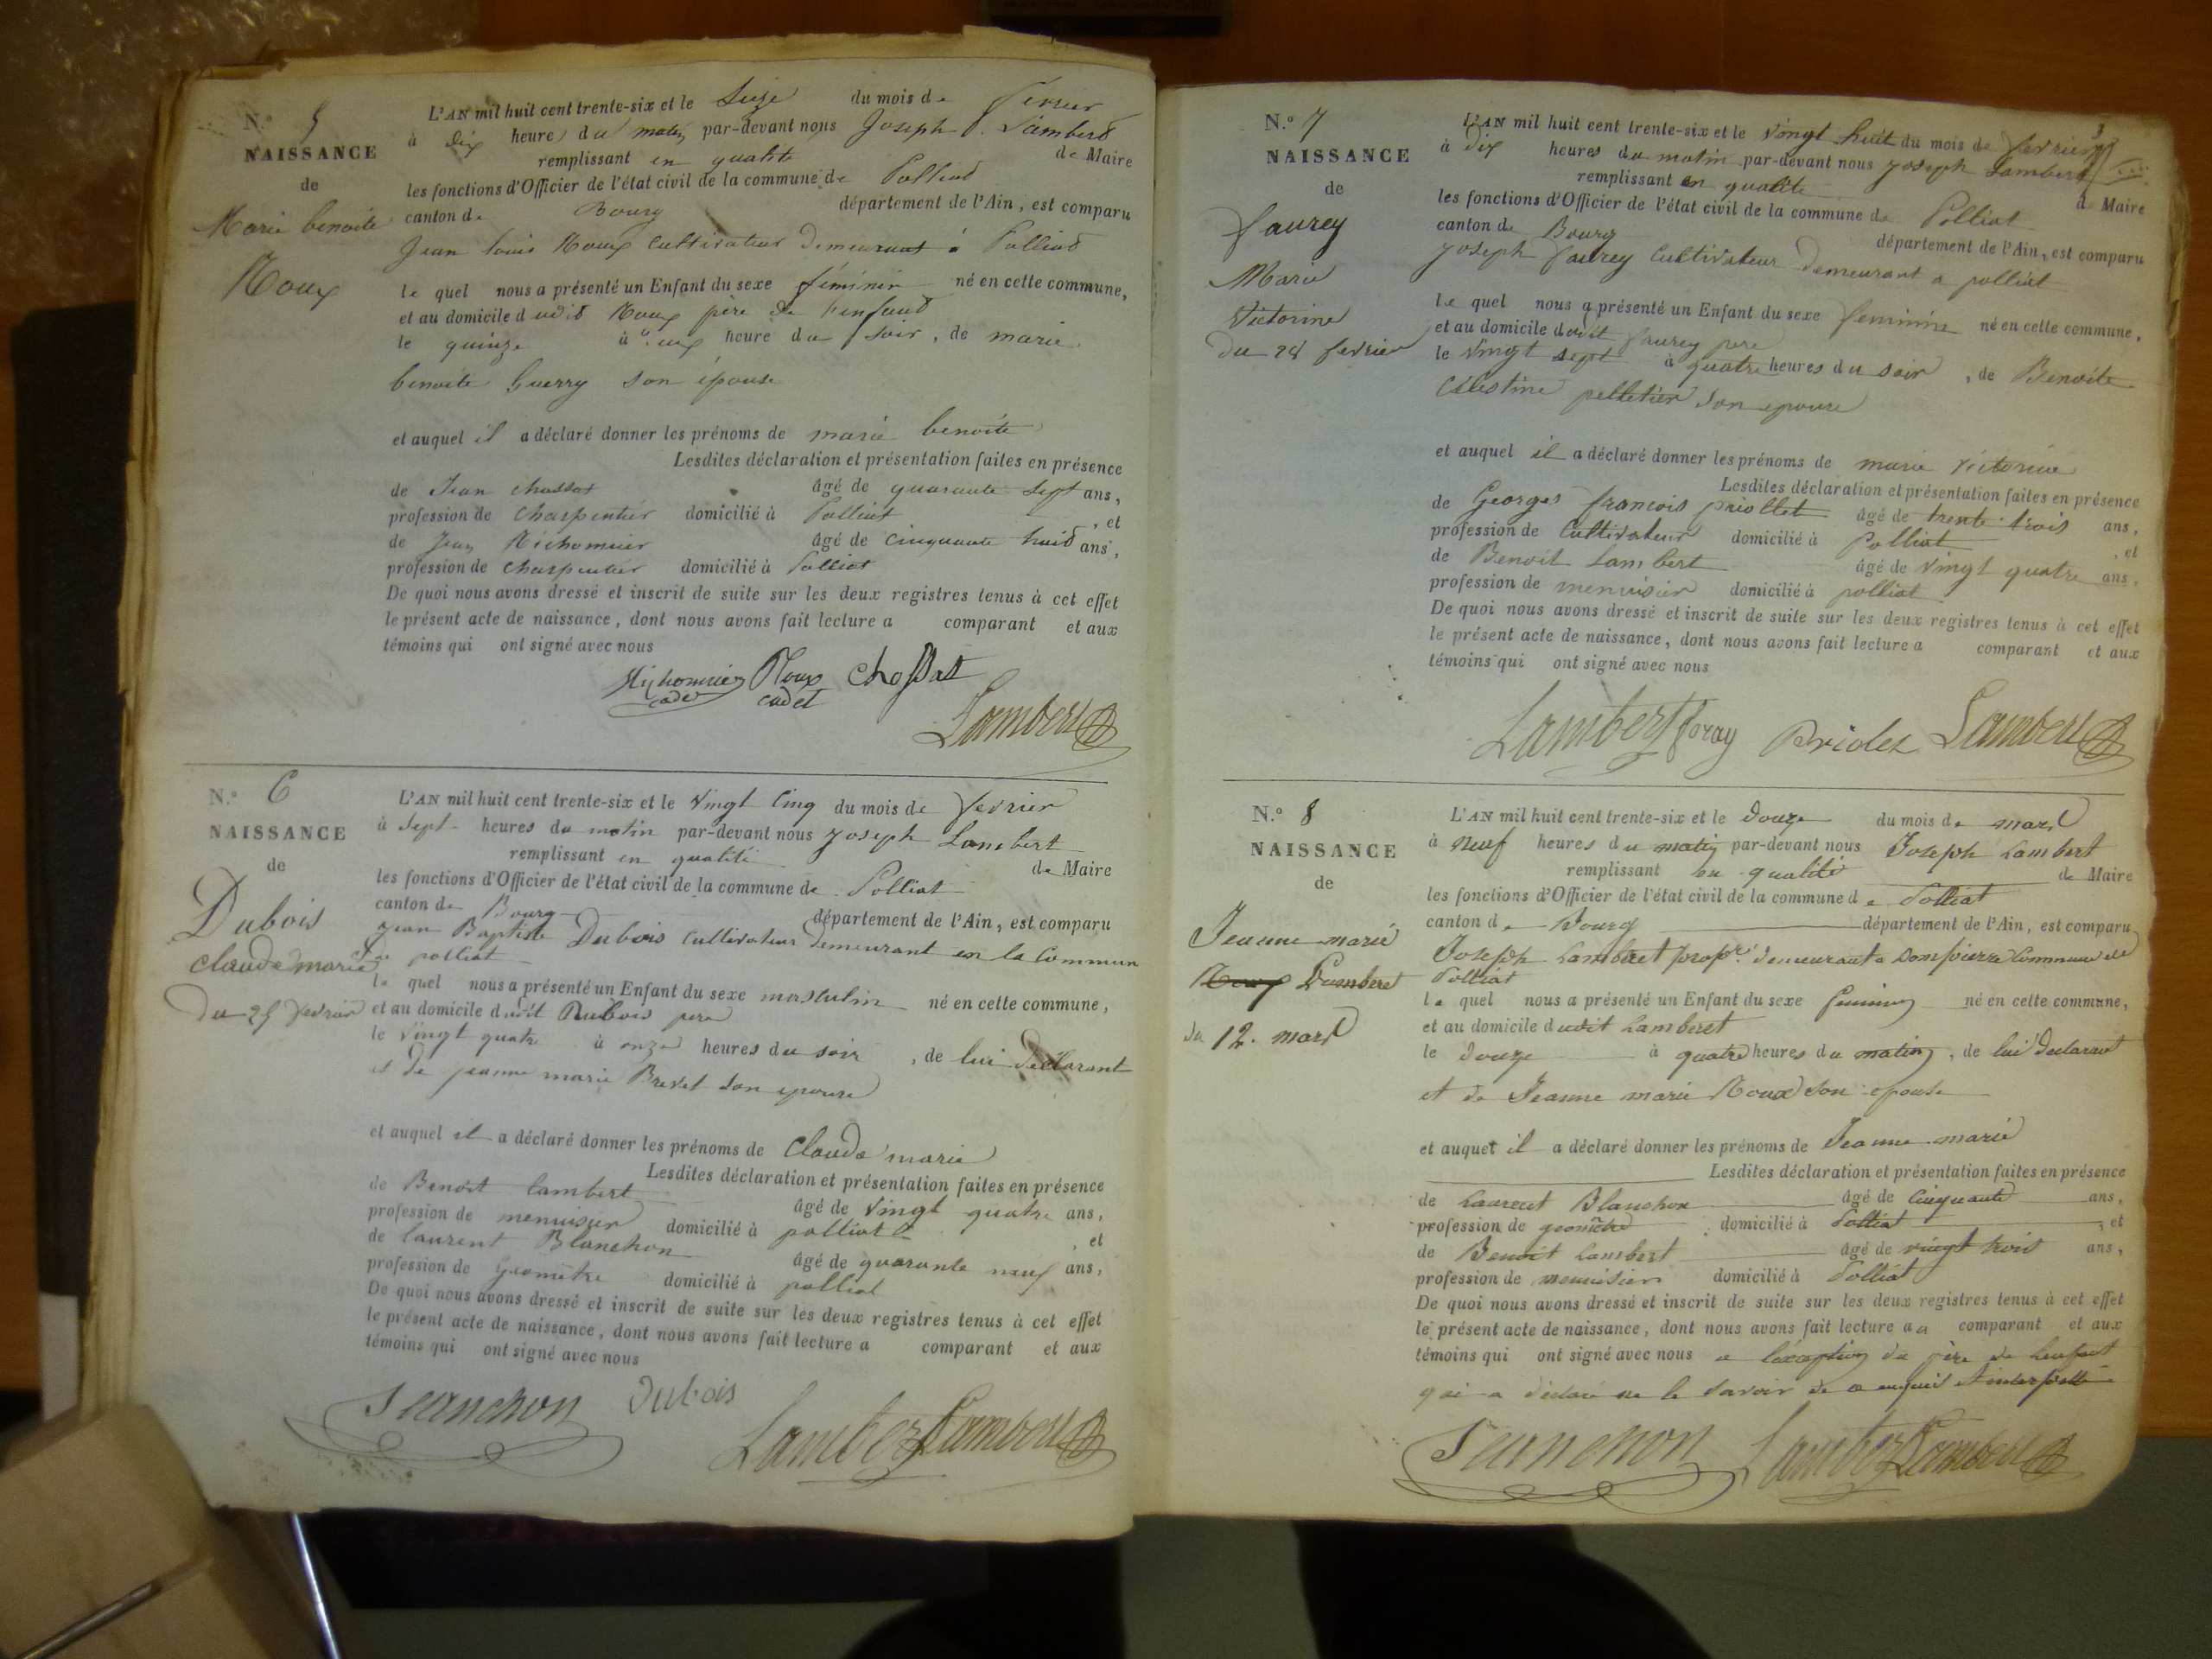 N.° 5
NAISSANCE
de
Marie benoite
Roux
L'AN mil huit cent trente-six et le Seize du mois de fevrier
à dix heures du matin par-devant nous Joseph Lambert
remplissant en qualité de Maire
les fonctions d'Officier de l'état civil de la commune de Polliat
canton de Bourg département de l'Ain, est comparu
Jean Louis Roux Cultivateur Demeurant à Polliat
le quel nous a présenté un Enfant du sexe féminin né en cette commune,
et au domicile dudit Roux père de l'enfant
le quinze à heure du soir, de marie
benoite Guerry son épouse
et auquel il a déclaré donner les prénoms de marie benoite
Lesdites déclaration et présentation faites en présence
de Jean chossat âgé de quarante sept ans,
profession de charpentier domicilié à Polliat , et
de Jean Michomier âgé de cinquante huit ans,
profession de charpentier domicilié à Polliat
De quoi nous avons dressé et inscrit de suite sur les deux registres tenus à cet effet
le présent acte de naissance, dont nous avons fait lecture a comparant et aux
témoins qui ont signé avec nous
Roux chossat
cadet
Lambert
N.° 6
NAISSANCE
de
Dubois
claude marie
Du 25 fevrier
L'AN mil huit cent trente-six et le vingt cinq du mois de fevrier
à sept heures du matin par-devant nous joseph Lambert
remplissant en qualité de Maire
les fonctions d'Officier de l'état civil de la commune de Polliat
canton de Bourg département de l'Ain, est comparu
jean Baptiste Dubois cultivateur Demeurant en la Commun
de polliat
le quel nous a présenté un Enfant du sexe masculin né en cette commune,
et au domicile dudit Dubois pere
le vingt quatre à onze heures du soir, de lui declarant
et de jeanne marie Brevet son epouse
et auquel il a déclaré donner les prénoms de Claude marie
Lesdites déclaration et présentation faites en présence
de Benoit lambert âgé de vingt quatre ans,
profession de menuisier domicilié à polliat , et
de laurent Blanchon âgé de quarante neuf ans,
profession de geometre domicilié à polliat
De quoi nous avons dressé et inscrit de suite sur les deux registres tenus à cet effet
le présent acte de naissance, dont nous avons fait lecture a comparant et aux
témoins qui ont signé avec nous
Blanchon Dubois
Lambert Lambert
3
N.° 7
NAISSANCE
de
faurey
Marie
Victorine
Du 28 fevrier
L'AN mil huit cent trente-six et le vingt huit du mois de fevrier
à dix heures du matin par-devant nous joseph Lambert
remplissant en qualité de Maire
les fonctions d'Officier de l'état civil de la commune de Polliat
canton de Bourg département de l'Ain, est comparu
joseph faurey Cultivateur Demeurant a polliat
le quel nous a présenté un Enfant du sexe feminin né en cette commune,
et au domicile dudit faurey pere
le vingt sept à quatre heures du soir, de Benoite
Celestine pelletier son epouse
et auquel il a déclaré donner les prénoms de marie victorine
Lesdites déclaration et présentation faites en présence
de Georges francois priollet âgé de trente trois ans,
profession de Cultivateur domicilié à Polliat , et
de Benoit Lambert âgé de vingt quatre ans,
profession de menuisier domicilié à polliat
De quoi nous avons dressé et inscrit de suite sur les deux registres tenus à cet effet
le présent acte de naissance, dont nous avons fait lecture a comparant et aux
témoins qui ont signé avec nous
Lambert foray Lambert
N.° 8
NAISSANCE
de
Jeanne marie
Roux Lamberet
du 12. mars
L'AN mil huit cent trente-six et le Douze du mois de mars
à neuf heures du matin par-devant nous Joseph Lambert
remplissant en qualité de Maire
les fonctions d'Officier de l'état civil de la commune de Polliat
canton de Bourg département de l'Ain, est comparu
Joseph Lamberet prop.re demeurant a Dompierre Commune de
Polliat
le quel nous a présenté un Enfant du sexe feminin né en cette commune,
et au domicile dudit Lamberet
le Douze à quatre heures du matin, de lui declarant
et de Jeanne marie Roux son epouse
et auquel il a déclaré donner les prénoms de Jeanne marie
Lesdites déclaration et présentation faites en présence
de Laurent Blanchon âgé de cinquante ans,
profession de geomètre domicilié à Polliat , et
de Benoit Lambert âgé de vingt trois ans,
profession de menuisier domicilié à Polliat
De quoi nous avons dressé et inscrit de suite sur les deux registres tenus à cet effet
le présent acte de naissance, dont nous avons fait lecture au comparant et aux
témoins qui ont signé avec nous a l'exception du père de l'enfant
qui a déclaré ne le savoir de ce enquis et interpellé
Blanchon Lambert Lambert